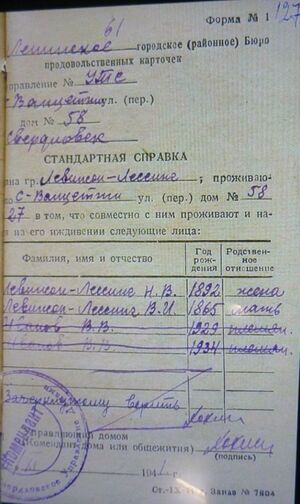 61
Форма № 1
127
Ленинское городское (районное) Бюро
продовольственных карточек
управление № УТС
С-Ванцетти ул. (пер.)
дом № 58
Свердловск
СТАНДАРТНАЯ СПРАВКА
на гр. Левинсон-Лессинг, проживаю-
по С-Ванцетти ул. (пер.) дом № 58
27 в том, что совместно с ним проживают и на-
я на его иждивении следующие лица:
Фамилия, имя и отчество Год рождения Родственное отношение
Левинсон-Лессинг Н.В. 1892 жена
Левинсон-Лессинг В.И. 1865 мать
Иванов В.В. 1929 племян.
Иванов В.В. 1934 племян.
Зачеркнутому верить
Управляющий домом
(Комендант дома или общежития)
(подпись)
Комендант
194
Ст.-IX- Заказ № 7804